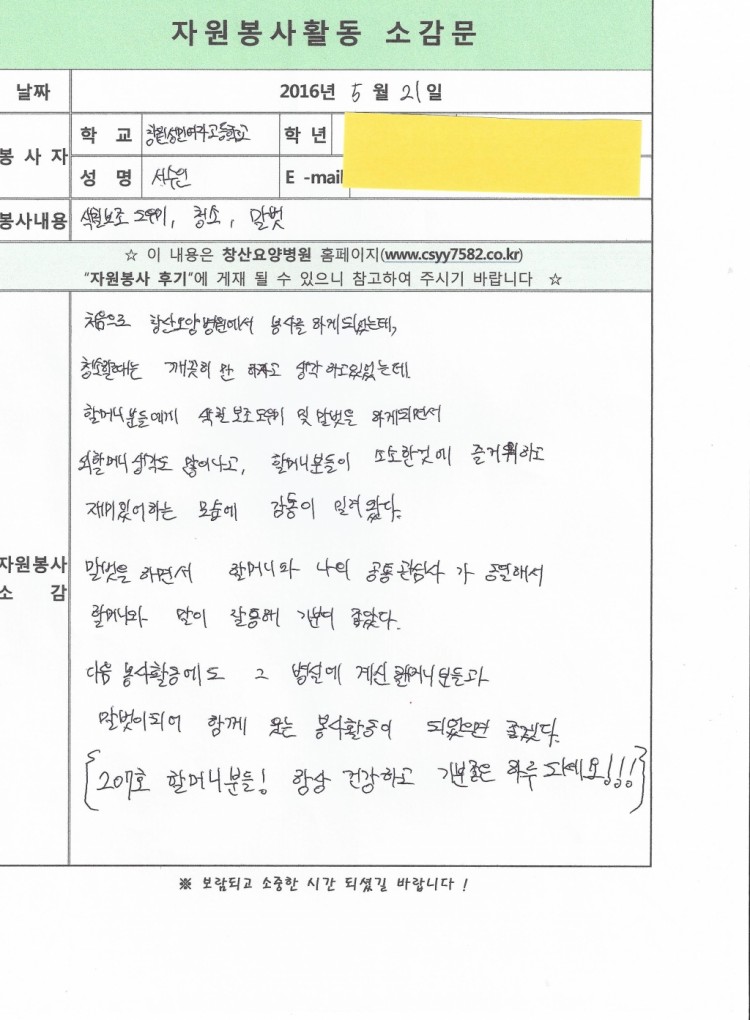 자원봉사활동 소감문
날짜 2016년 5월 21일
봉사자 학 교 창원성민여자고등학교 학 년
성 명 서수연 E -mail
봉사내용 식월보조 도우미, 청소, 말벗
☆ 이 내용은 창산요양병원 홈페이지(www.csyy7582.co.kr)
"자원봉사 후기"에 게재 될 수 있으니 참고하여 주시기 바랍니다 ☆
처음으로 창산요양병원에서 봉사를 하게되었는데,
청소할때는 깨끗히 만 하자고 생각하고있었는데
할머니분들에게 식월 보조 도우미 및 말벗을 하게되면서
외할머니 생각도 많이나고, 할머니분들이 또소한것에 즐거워하고
재미있어하는 모습에 감동이 밀려왔다.
자원봉사 소 감
말벗을 하면서 할머니와 나의 공통관심사 가 공열해서
할머니와 말이 잘통해 기분이 좋았다.
다음 봉사활동에도 그 병실에 계신 할머니분들과
말벗이되어 함께 웃는 봉사활동이 되었으면 좋겠다.
{207호 할머니분들! 항상 건강하고 기분좋은 하루 되세요!!!}
※ 보람되고 소중한 시간 되셨길 바랍니다 !